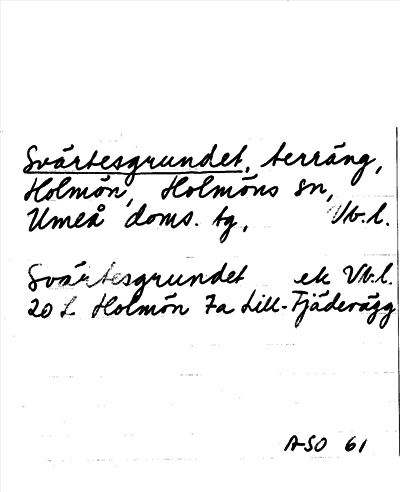 Svärtesgrundet, terräng,
Holmön, Holmöns sn,
Umeå doms. tg, Vb.l.
Svärtesgrundet ek Vb.l.
20 L Holmön 7a Lill-Fjäderägg
A-SO 61